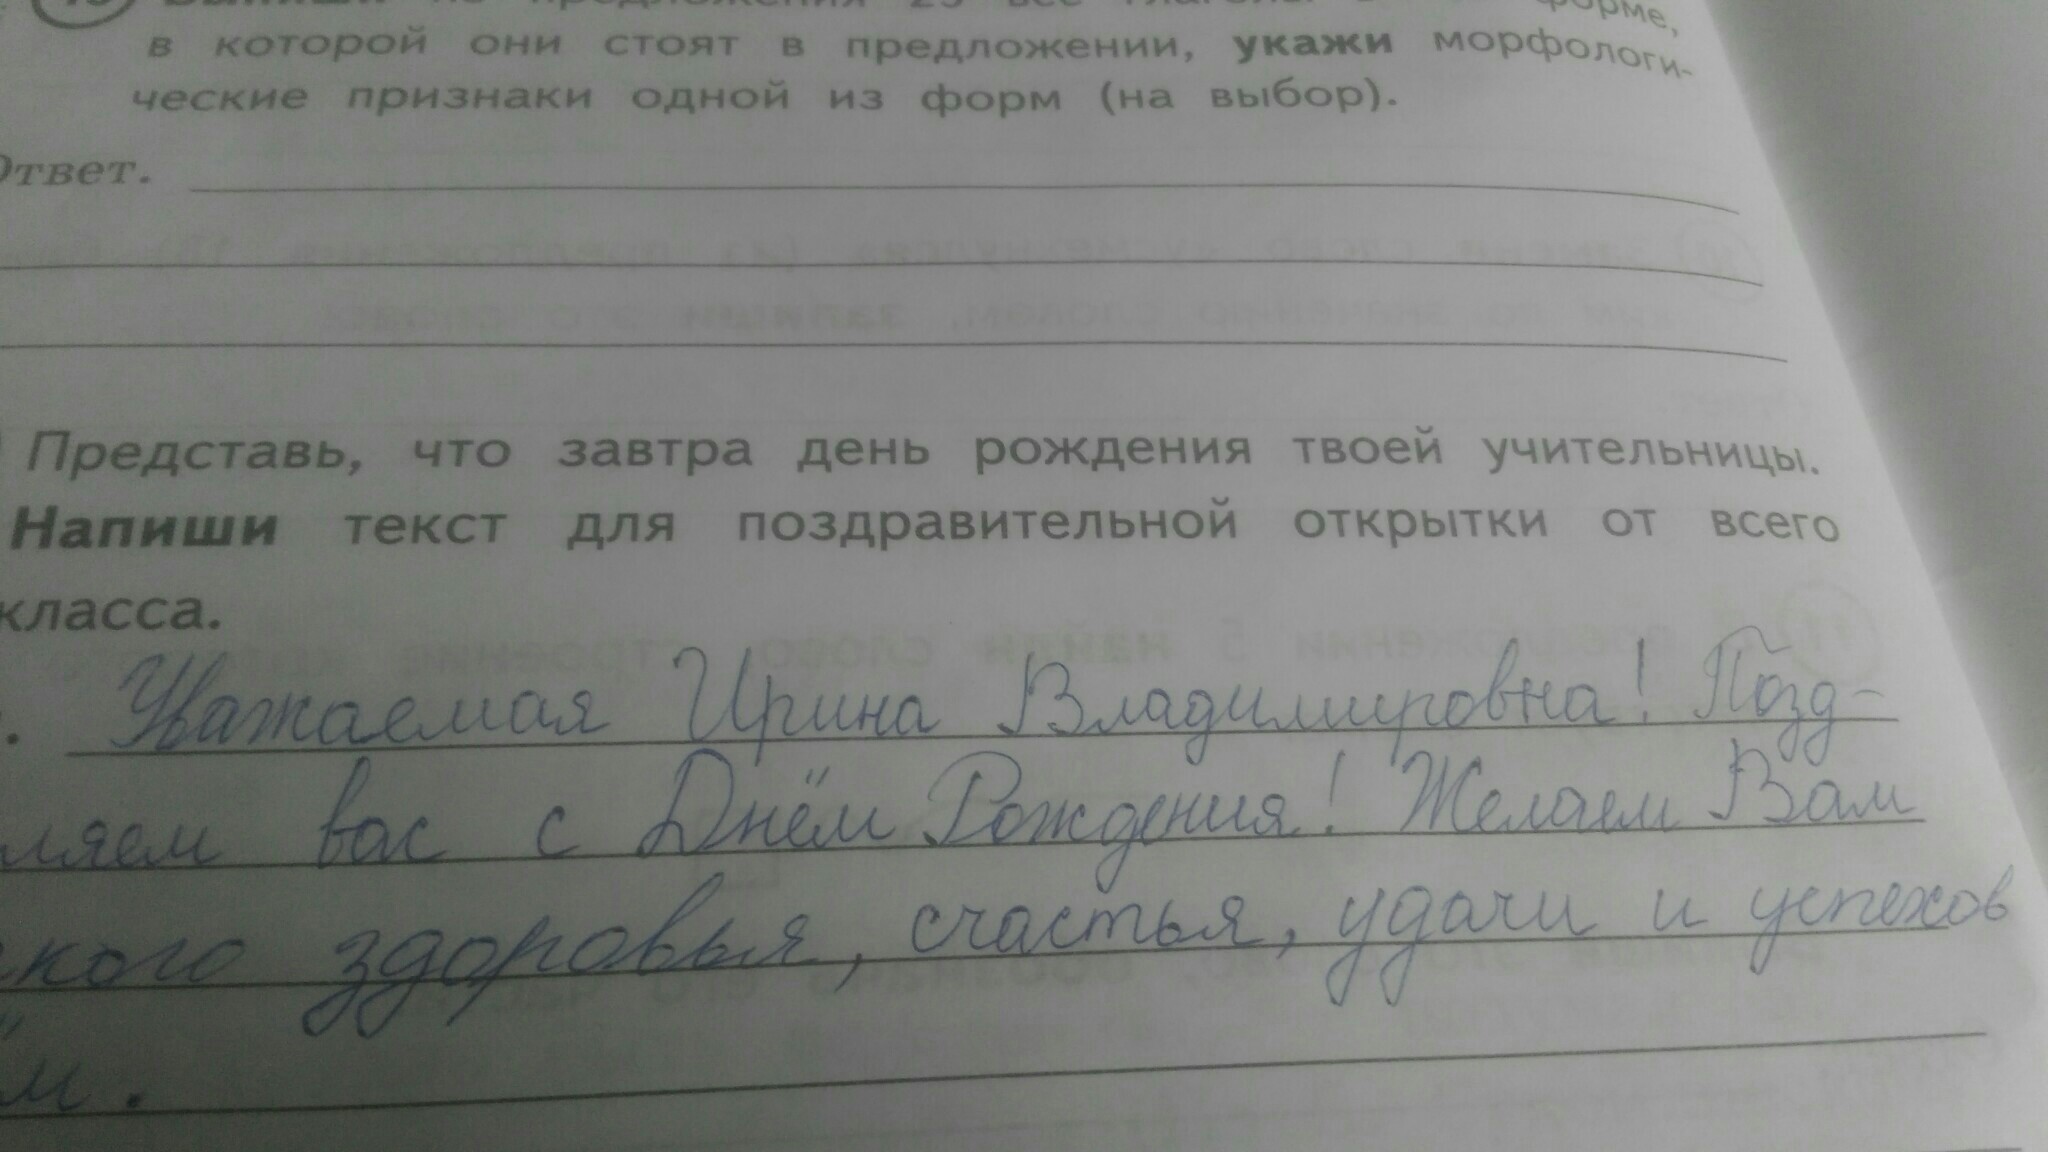 предложения 23 все
в которой они стоят в предложении, укажи морфологи-
ческие признаки одной из форм (на выбор).
Ответ.
Представь, что завтра день рождения твоей учительницы.
Напиши текст для поздравительной открытки от всего
класса.
Уважаемая Ирина Владимировна! Позд-
ляем вас с Днём Рождения! Желаем Вам
кого здоровья, счастья, удачи и успехов
м.